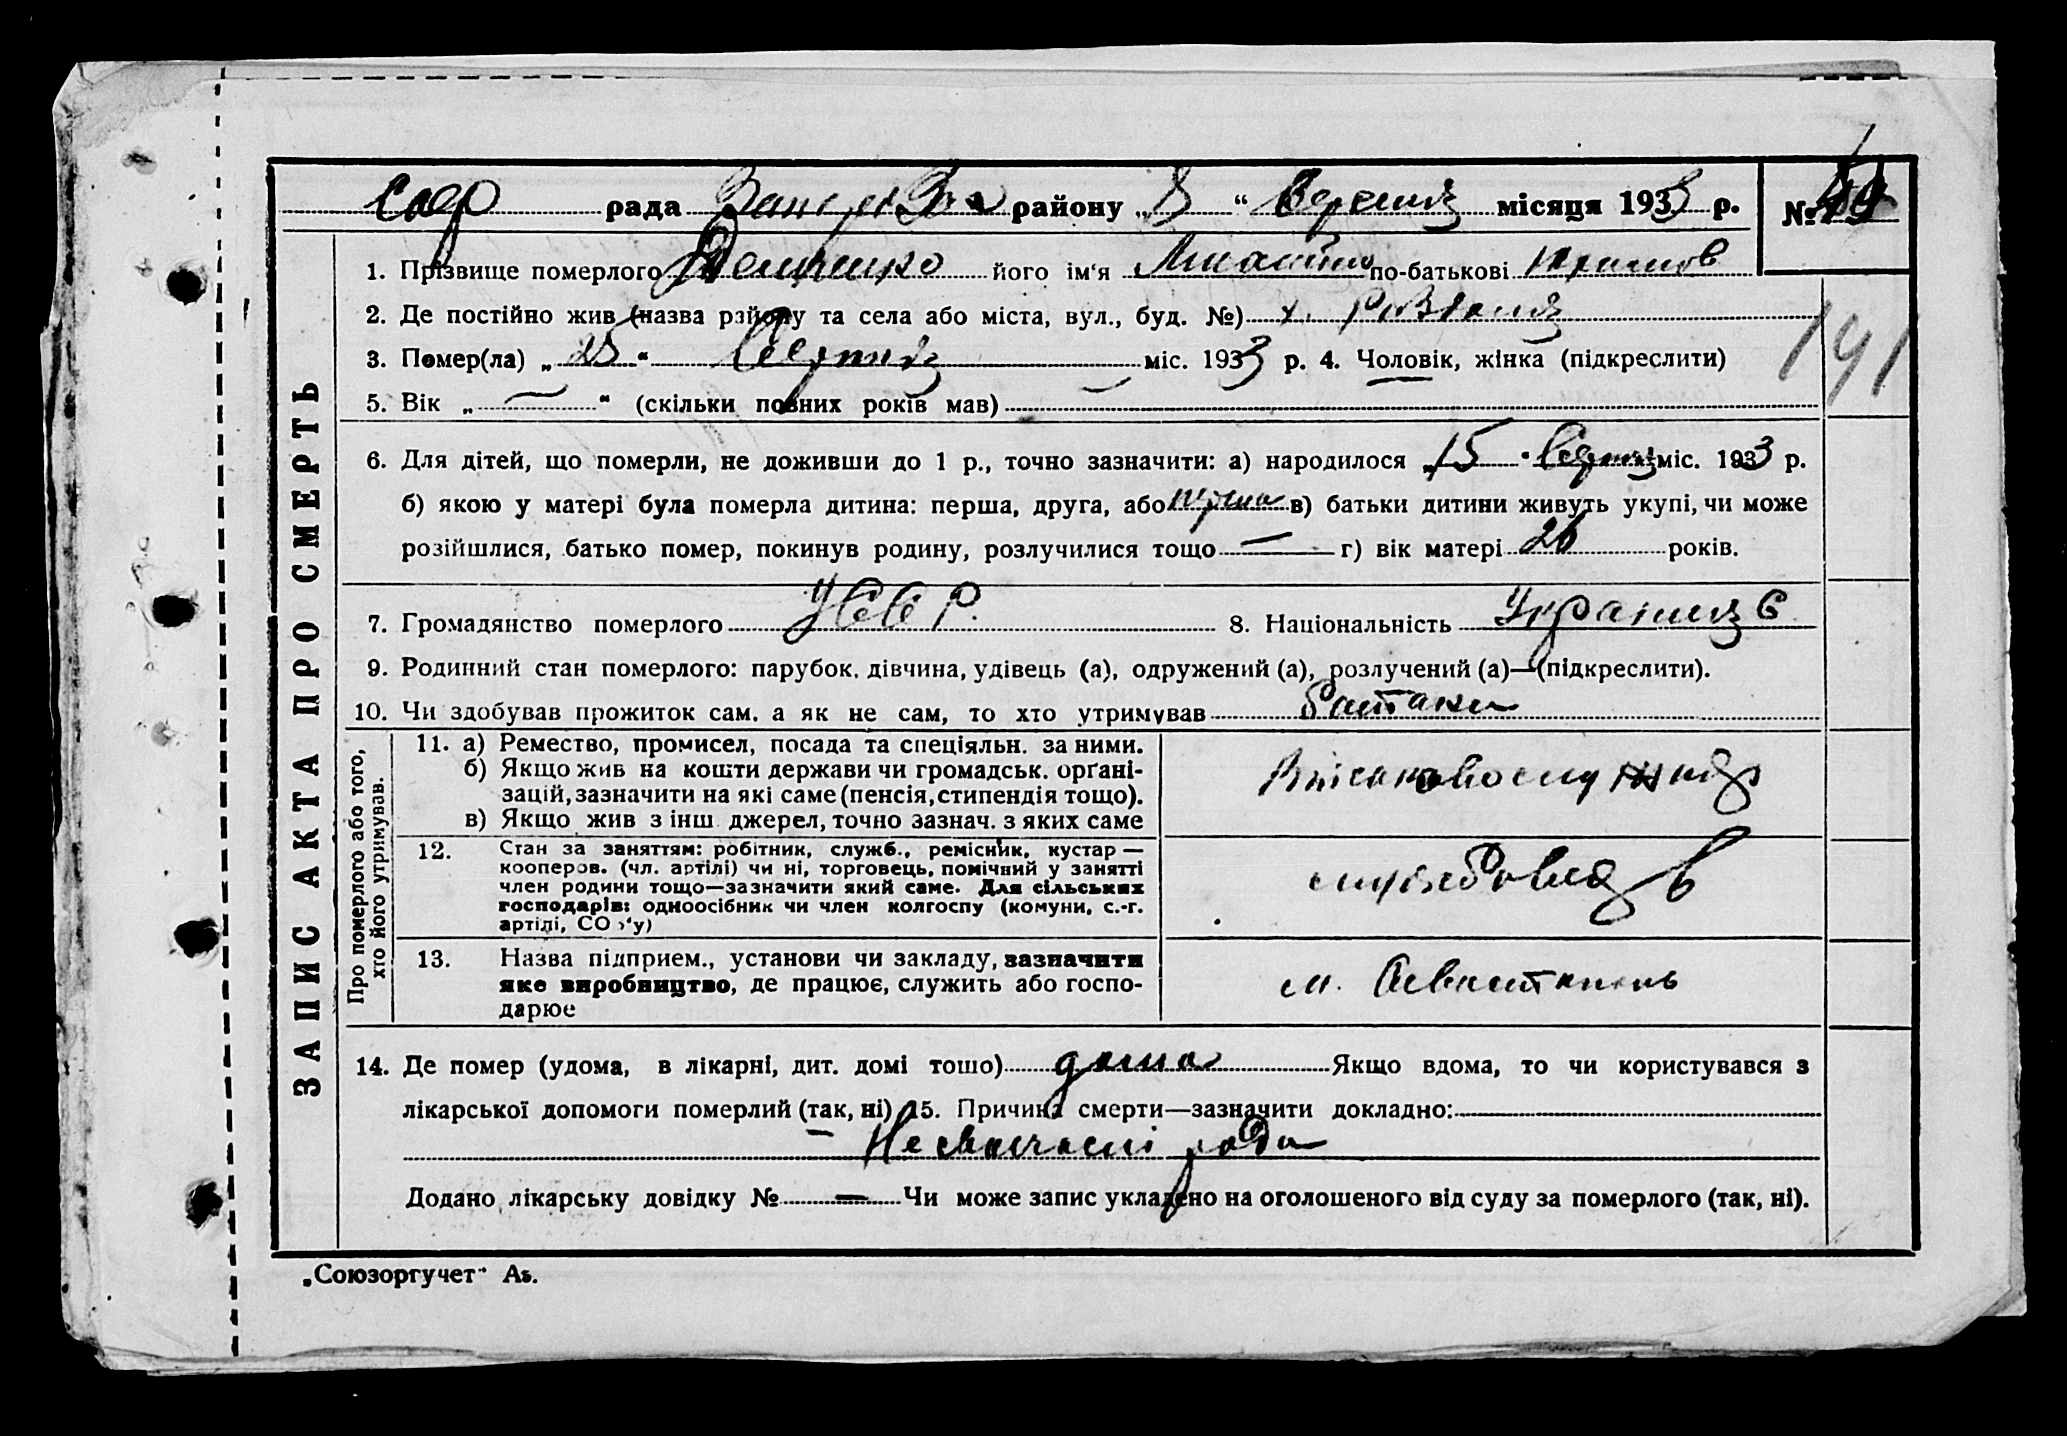 рада району „ 8 “ Вересня місяця 1933 р. №
1. Прізвище померлого Демченко його ім‘я по-батькові
2. Де постійно жив (назва району та села або міста, вул., буд. №) х.
3. Помер(ла) „ 25 “ Серпня міс. 1933 р. 4. Чоловік, жінка (підкреслити)
191
5. Вік „ — “ (скільки повних років мав) —
6. Для дітей, що померли, не доживши до 1 р., точно зазначити: а) народилося „ 15 “ Серпня міс. 1933 р.
б) якою у матері була померла дитина: перша, друга, або перша в) батьки дитини живуть укупі, чи може
розійшлися, батько помер, покинув родину, розлучилися тощо — г) вік матері 26 років.
7. Громадянство померлого УССР. 8. Національність Українец
9. Родинний стан померлого: парубок, дівчина, удівець (а), одружений (а), розлучений (а)—(підкреслити).
10. Чи здобував прожиток сам, а як не сам, то хто утримував батьки
ЗАПИС АКТА ПРО СМЕРТЬ
Про померлого або того,
хто його утримував.
11. а) Ремество, промисел, посада та спеціяльн. за ними.
б) Якщо жив на кошти держави чи громадськ. орґані-
зацій, зазначити на які саме (пенсія, стипендія тощо).
в) Якщо жив з інш джерел, точно зазнач. з яких саме
12. Стан за заняттям: робітник, служб., ремісник, кустар —
кооперов. (чл. артілі) чи ні, торговець, помічний у занятті
член родини тощо—зазначити який саме. Для сільських
господарів: одноосібник чи член колгоспу (комуни, с.-г.
артілі, СО з‘у)
13. Назва підприєм., установи чи закладу, зазначити
яке виробництво, де працює, служить або госпо-
дарює
м. Севастополь
14. Де помер (удома, в лікарні, дит. домі тощо) дома Якщо вдома, то чи користувався з
лікарської допомоги померлий (так, ні) 15. Причина смерти—зазначити докладно:
Несвоєчасні роди
Додано лікарську довідку № — Чи може запис укладено на оголошеного від суду за померлого (так, ні).
„Союзоргучет“ А₅.